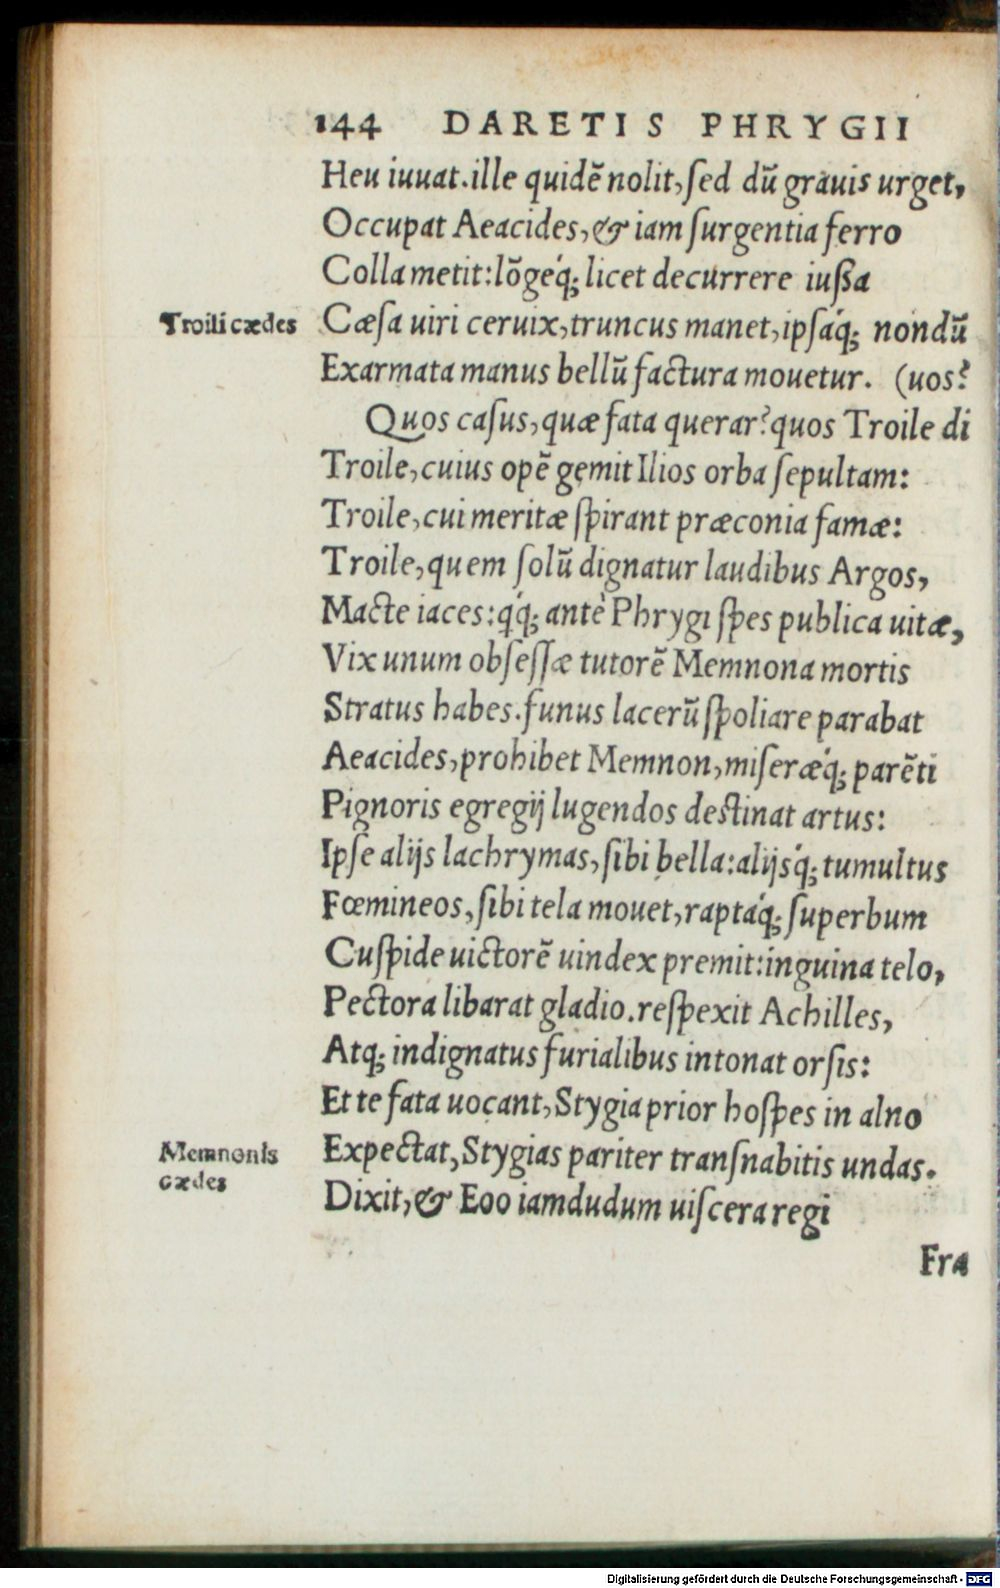 144 DARETIS PHRYGII
Heu iuuat.ille quidē nolit,ſed dū grauis urget,
Occupat Aeacides,& iam ſurgentia ferro
Colla metit:lōgeq́; licet decurrere iuſſa
Troili cædes
Cæſa uiri ceruix,truncus manet,ipſaq́; nondū
Exarmata manus bellū factura mouetur. (uos?
Quos caſus,quæ fata querar?quos Troile di
Troile,cuius opē gemit Ilios orba ſepultam:
Troile,cui meritæ ſpirant præconia famæ:
Troile,quem ſolū dignatur laudibus Argos,
Macte iaces:qq́; antè Phrygı ſpes publica uitæ,
Vix unum obſeſſæ tutorē Memnona mortis
Stratus habes.funus lacerū ſpoliare parabat
Aeacides,prohibet Memnon,miſeræq́; parēti
Pignoris egregij lugendos deſtinat artus:
Ipſe alijs lachrymas,ſibi bella:alijsq́; tumultus
Fœmineos,ſibi tela mouet,raptaq́; ſuperbum
Cuſpide uictorē uindex premit:inguina telo,
Pectora libarat gladio.reſpexit Achilles,
Atq; indignatus furialibus intonat orſis:
Et te fata uocant,Stygia prior hoſpes in alno
Memnonis
cædes
Expectat,Stygias pariter tranſnabitis undas.
Dixit,& Eoo iamdudum uiſcera regi
Fra
Digitalisierung gefördert durch die Deutsche Forschungsgemeinschaft - DFG